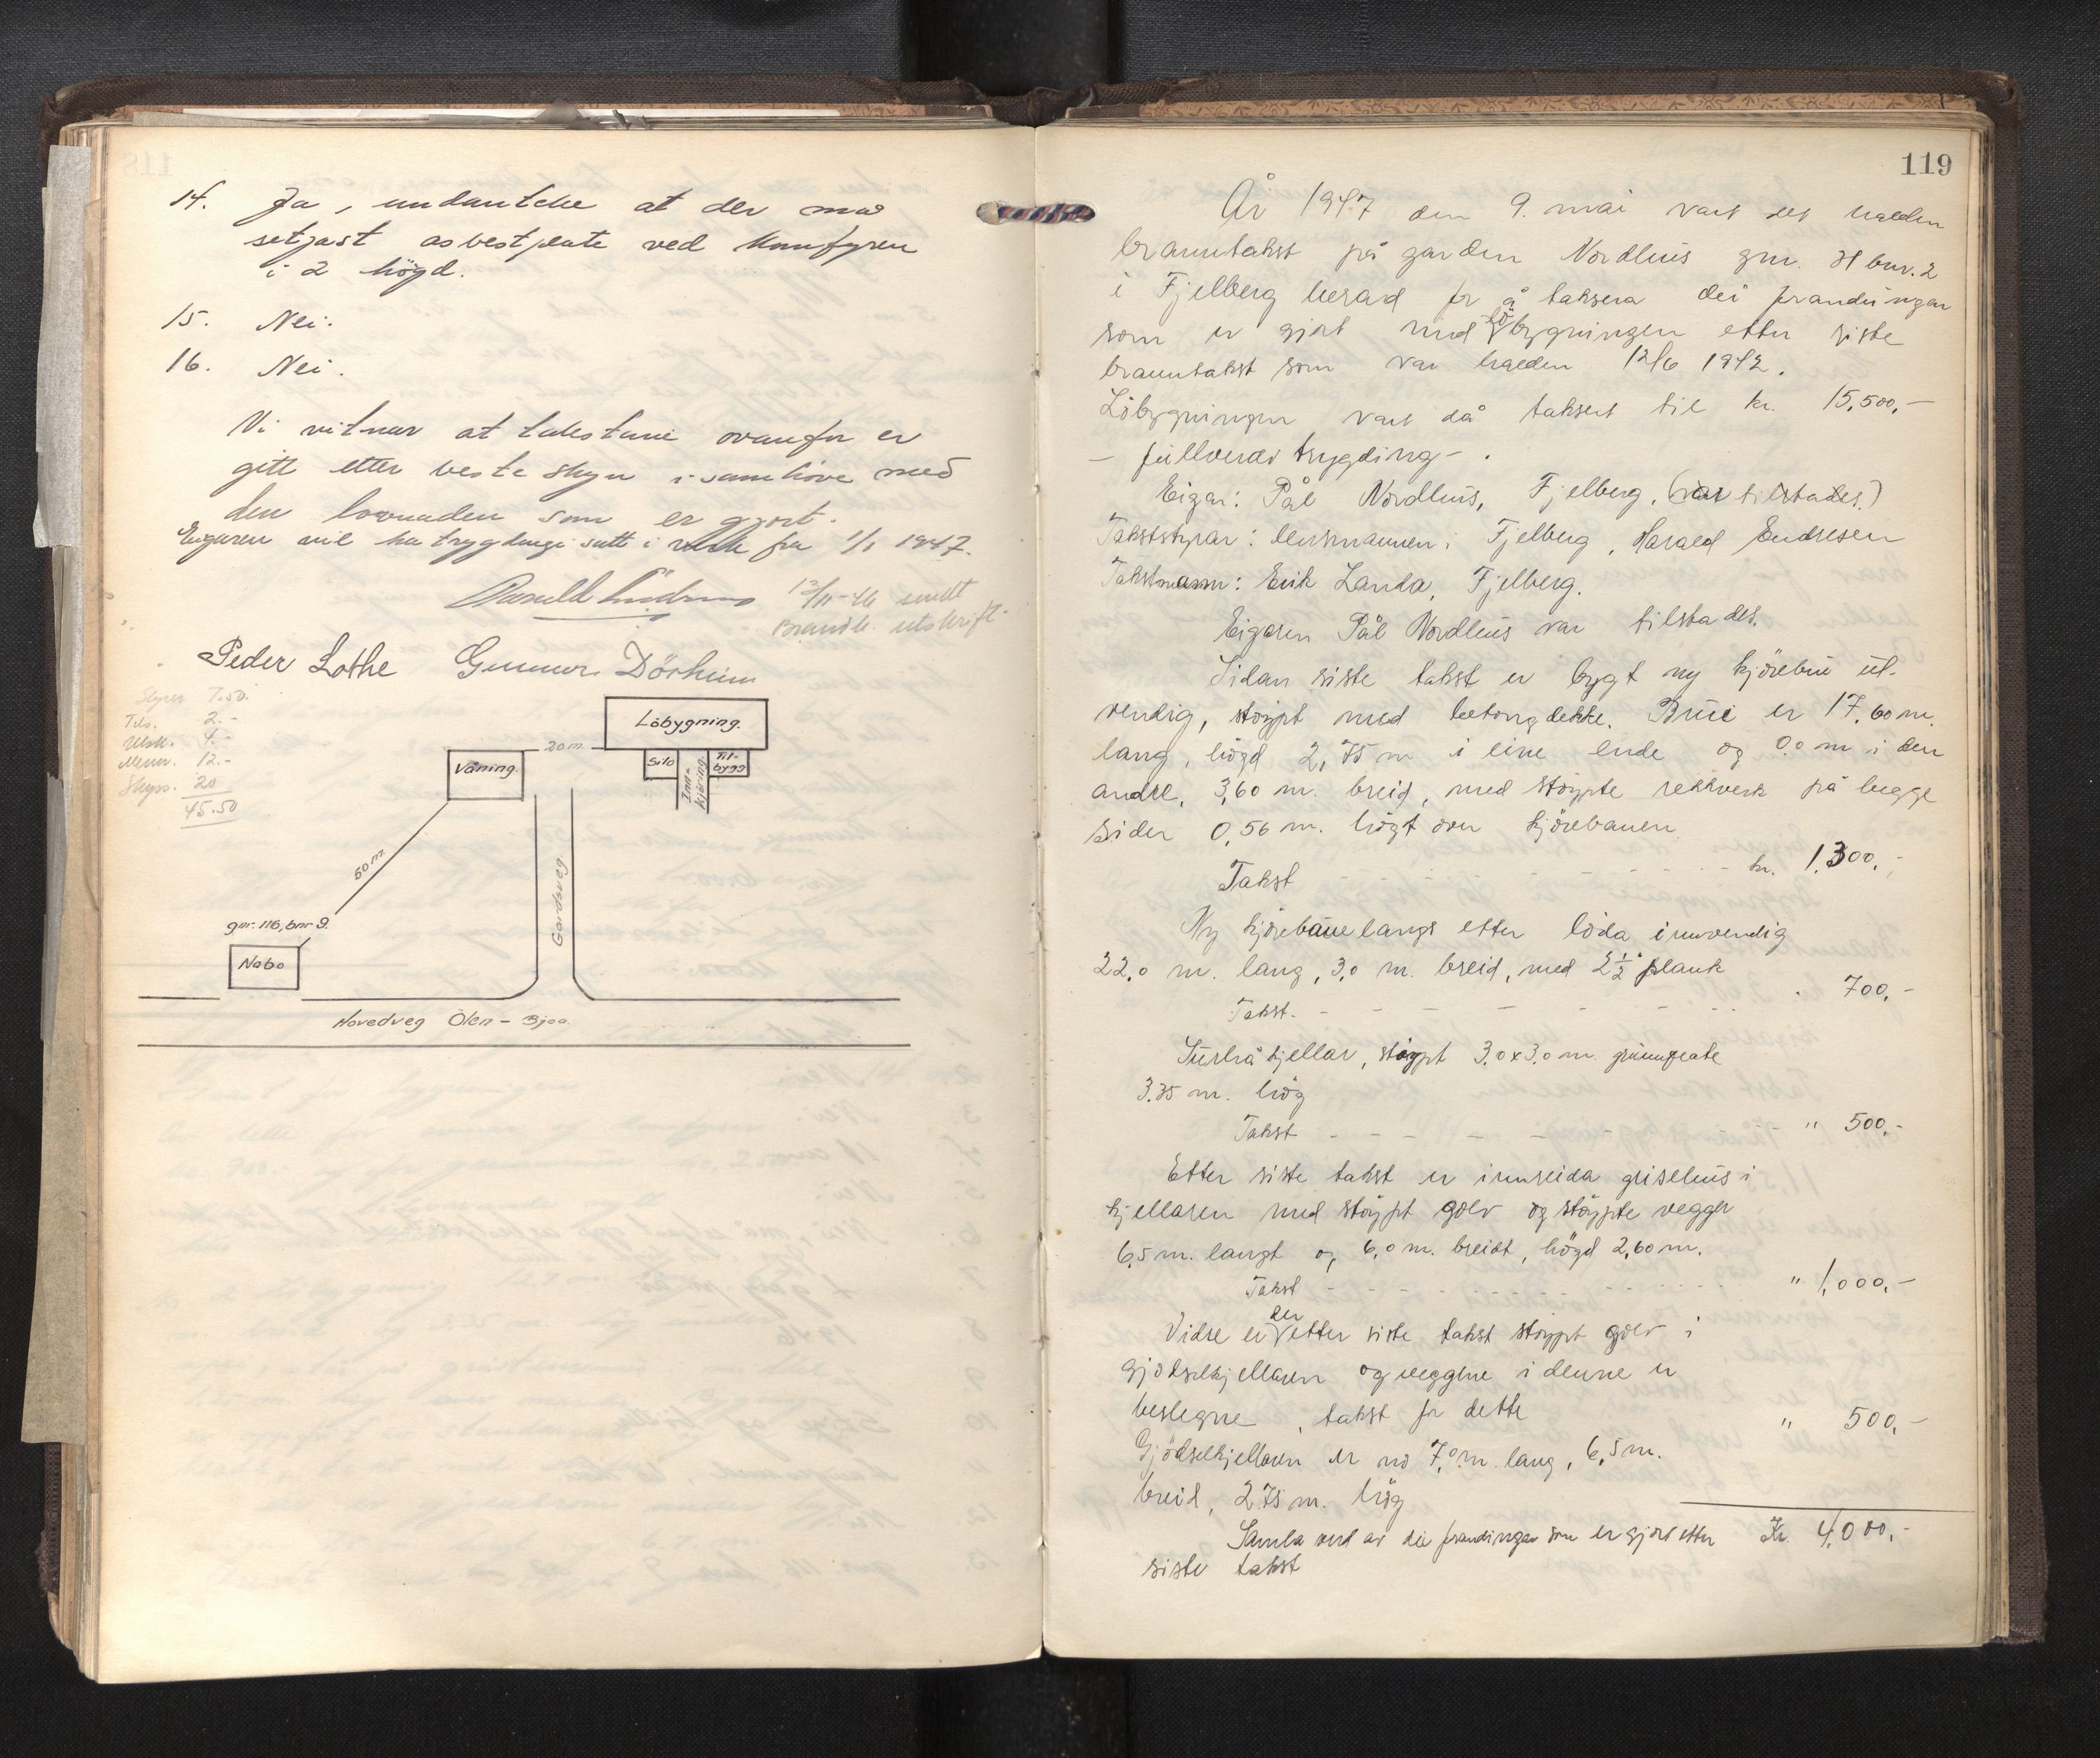 14. Ja, undantche at der maa
setjast asbestplate ved komfyren
i 2 högd.
15. Nei.
16. Nei.
Vi vitnar at takstane ovanfor er
gitt etter beste skyn i samhöve med
den lovnaden som er gjort.
Eigaren vil ha trygdinga satt i verk fra 1/1 1947.
Harald Endresen 13/11-46 sendt
Brandk. utskrift.
Peder Lothe Gunnar Dörheim
Styrer 7.50.
Tils. 2.-
Utsk. 4.-
Menn. 12.-
Skyss. 20
45.50
Löbygning.
20 m.
Våning.
Silo
Inn-
kjöring
Til-
bygg
50 m.
Gardsveg.
gnr. 116, bnr 9.
Nabo
Hovedveg Ölen - Bjoa.
119
År 1947 den 9. mai vart det halden
branntakst på garden Nordhus gnr. 31 bnr. 2
i Fjelberg herad for å taksera dei forandringar
som er gjort med löbygningen etter siste
branntakst som var halden 12/6 1942.
Löbygningen vart då taksert til kr. 15,500,-
- fullverdi trygding - .
Eigar: Pål Nordhus, Fjelberg. (var tilstades.)
Takststyrar: lensmannen i Fjelberg, Harald Endresen
Takstmann: Erik Landa, Fjelberg.
Eigaren Pål Nordhus var tilstades.
Sidan siste takst er bygt ny kjörebru ut-
vendig, stöypt med betongdekke. Brui er 17,60 m.
lang, högd 2,75 m i eine ende og 0.0 m i den
andre, 3,60 m. breid, med stöypte rekkverk på begge
sider 0,56 m. högt over kjörebanen.
Takst - - - - - - - - - - kr. 1.300,-
Ny kjörebane langs etter löda innvendig
22,0 m. lang, 3,0 m. breid, med 2 1/2" plank
Takst. - - - - - - - - " 700,-
Surhå kjellar, stöypt 3,0 x 3,0 m. grunnplate
3.35 m. hög
Takst - - - - - - - - - - " 500,-
Etter siste takst er innreida grisehus i
kjellaren med stöypt golv og stöypte vegger
6,5 m. langt og 6,0 m. breidt, högd 2,60 m.
Takst - - - - - - - - - - " 1,000,-
Vidre er der etter siste takst stöypt golv i
gjödselkjellaren og veggene i denne er
beslegne, takst for dette " 500,-
Gjödselkjellaren er no 7,0 m. lang, 6,5 m.
breid, 2.75 m. hög
Samla verd av dei forandringar som er gjort etter Kr. 4,000,-
siste takst